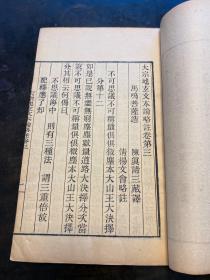 大宗地玄文本論略註卷第三
馬鳴菩薩造　陳眞諦三藏譯
清楊文會略註
不可思議不可稱量俱俱微塵本大山王大決擇
分第十二
如是已說無盡無窮塵塵數量道路大決擇分次當
說不可思議不可稱量俱俱微塵本大山王大決擇
分其相云何偈曰
不思議海中　則有三種法　謂三重俗故
配釋應了知